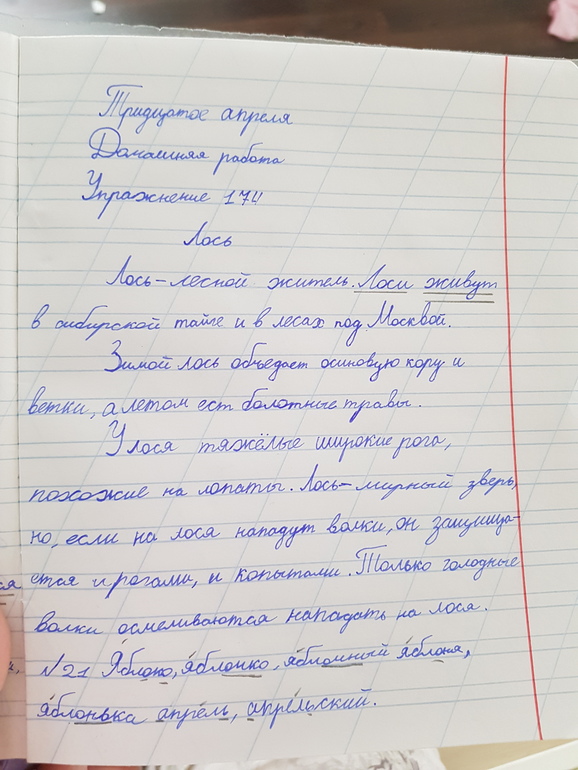 Тридцатое апреля
Домашняя работа
Упражнение 174
Лось
Лось-лесной житель. Лоси живут
в сибирской тайге и в лесах под Москвой.
Зимой лось объедает осиновую кору и
ветки, а летом ест болотные травы.
У лося тяжёлые широкие рога,
похожие на лопаты. Лось-мирный зверь,
но, если на лося нападут волки, он защища-
ется и рогами, и копытами. Только голодные
волки осмеливаются нападать на лося.
№21 Яблоко, яблочко, яблочный яблоня,
яблонька апрель, апрельский.